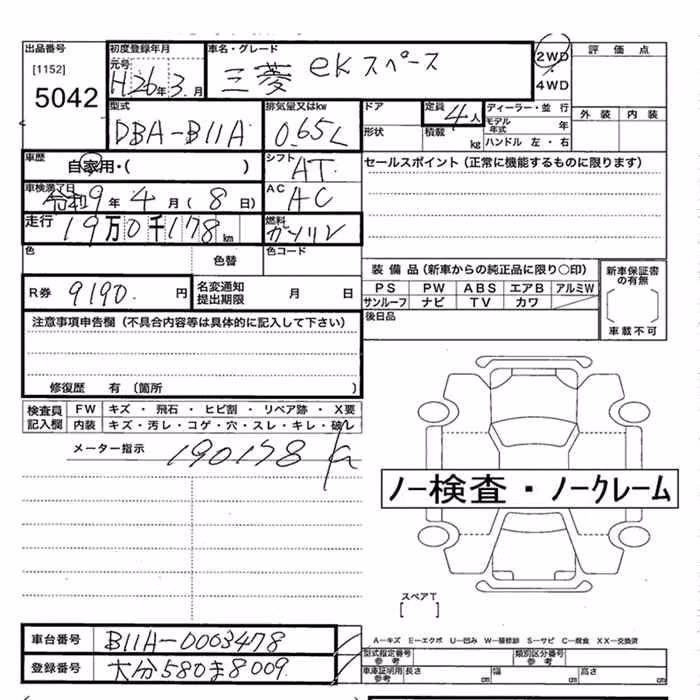 出品番号 初度登録年月 車名・グレード 評価点
[1152] 元号 三菱 ekスペース 2WD
5042 H26年3.月 4WD
型式 排気量又はkw ドア 定員 4人 ディーラー・並行 外装 内装
DBA-B11A 0.65L 形状 積載 kg モデル年式 年
ハンドル 左・右
車歴 自家用・( ) シフト AT セールスポイント (正常に機能するものに限ります)
車検満了日 令和9年4月(8日) AC AC
走行 19万0千178km 燃料 ガソリン
色 色替 色コード
装備品(新車からの純正品に限り○印) 新車保証書の有無
R券 9190. 円 名変通知提出期限 月 日 PS PW ABS エアB アルミW
サンルーフ ナビ TV カワ 車載不可
注意事項申告欄(不具合内容等は具体的に記入して下さい) 後日品
修復歴 有(箇所 )
検査員記入欄 FW キズ・飛石・ヒビ割・リペア跡・X要
内装 キズ・汚レ・コゲ・穴・スレ・キレ・破レ
メーター指示 190178
ノー検査・ノークレーム
スペアT
[ ]
車台番号 B11A-0003478
A-キズ E-エクボ U-凹み W-補修跡 S-サビ C-腐食 XX-交換済
登録番号 大分580ま8009
型式指定番号 参考 類別区分番号 参考
車庫証明用 参考 長さ cm 幅 cm 高さ cm